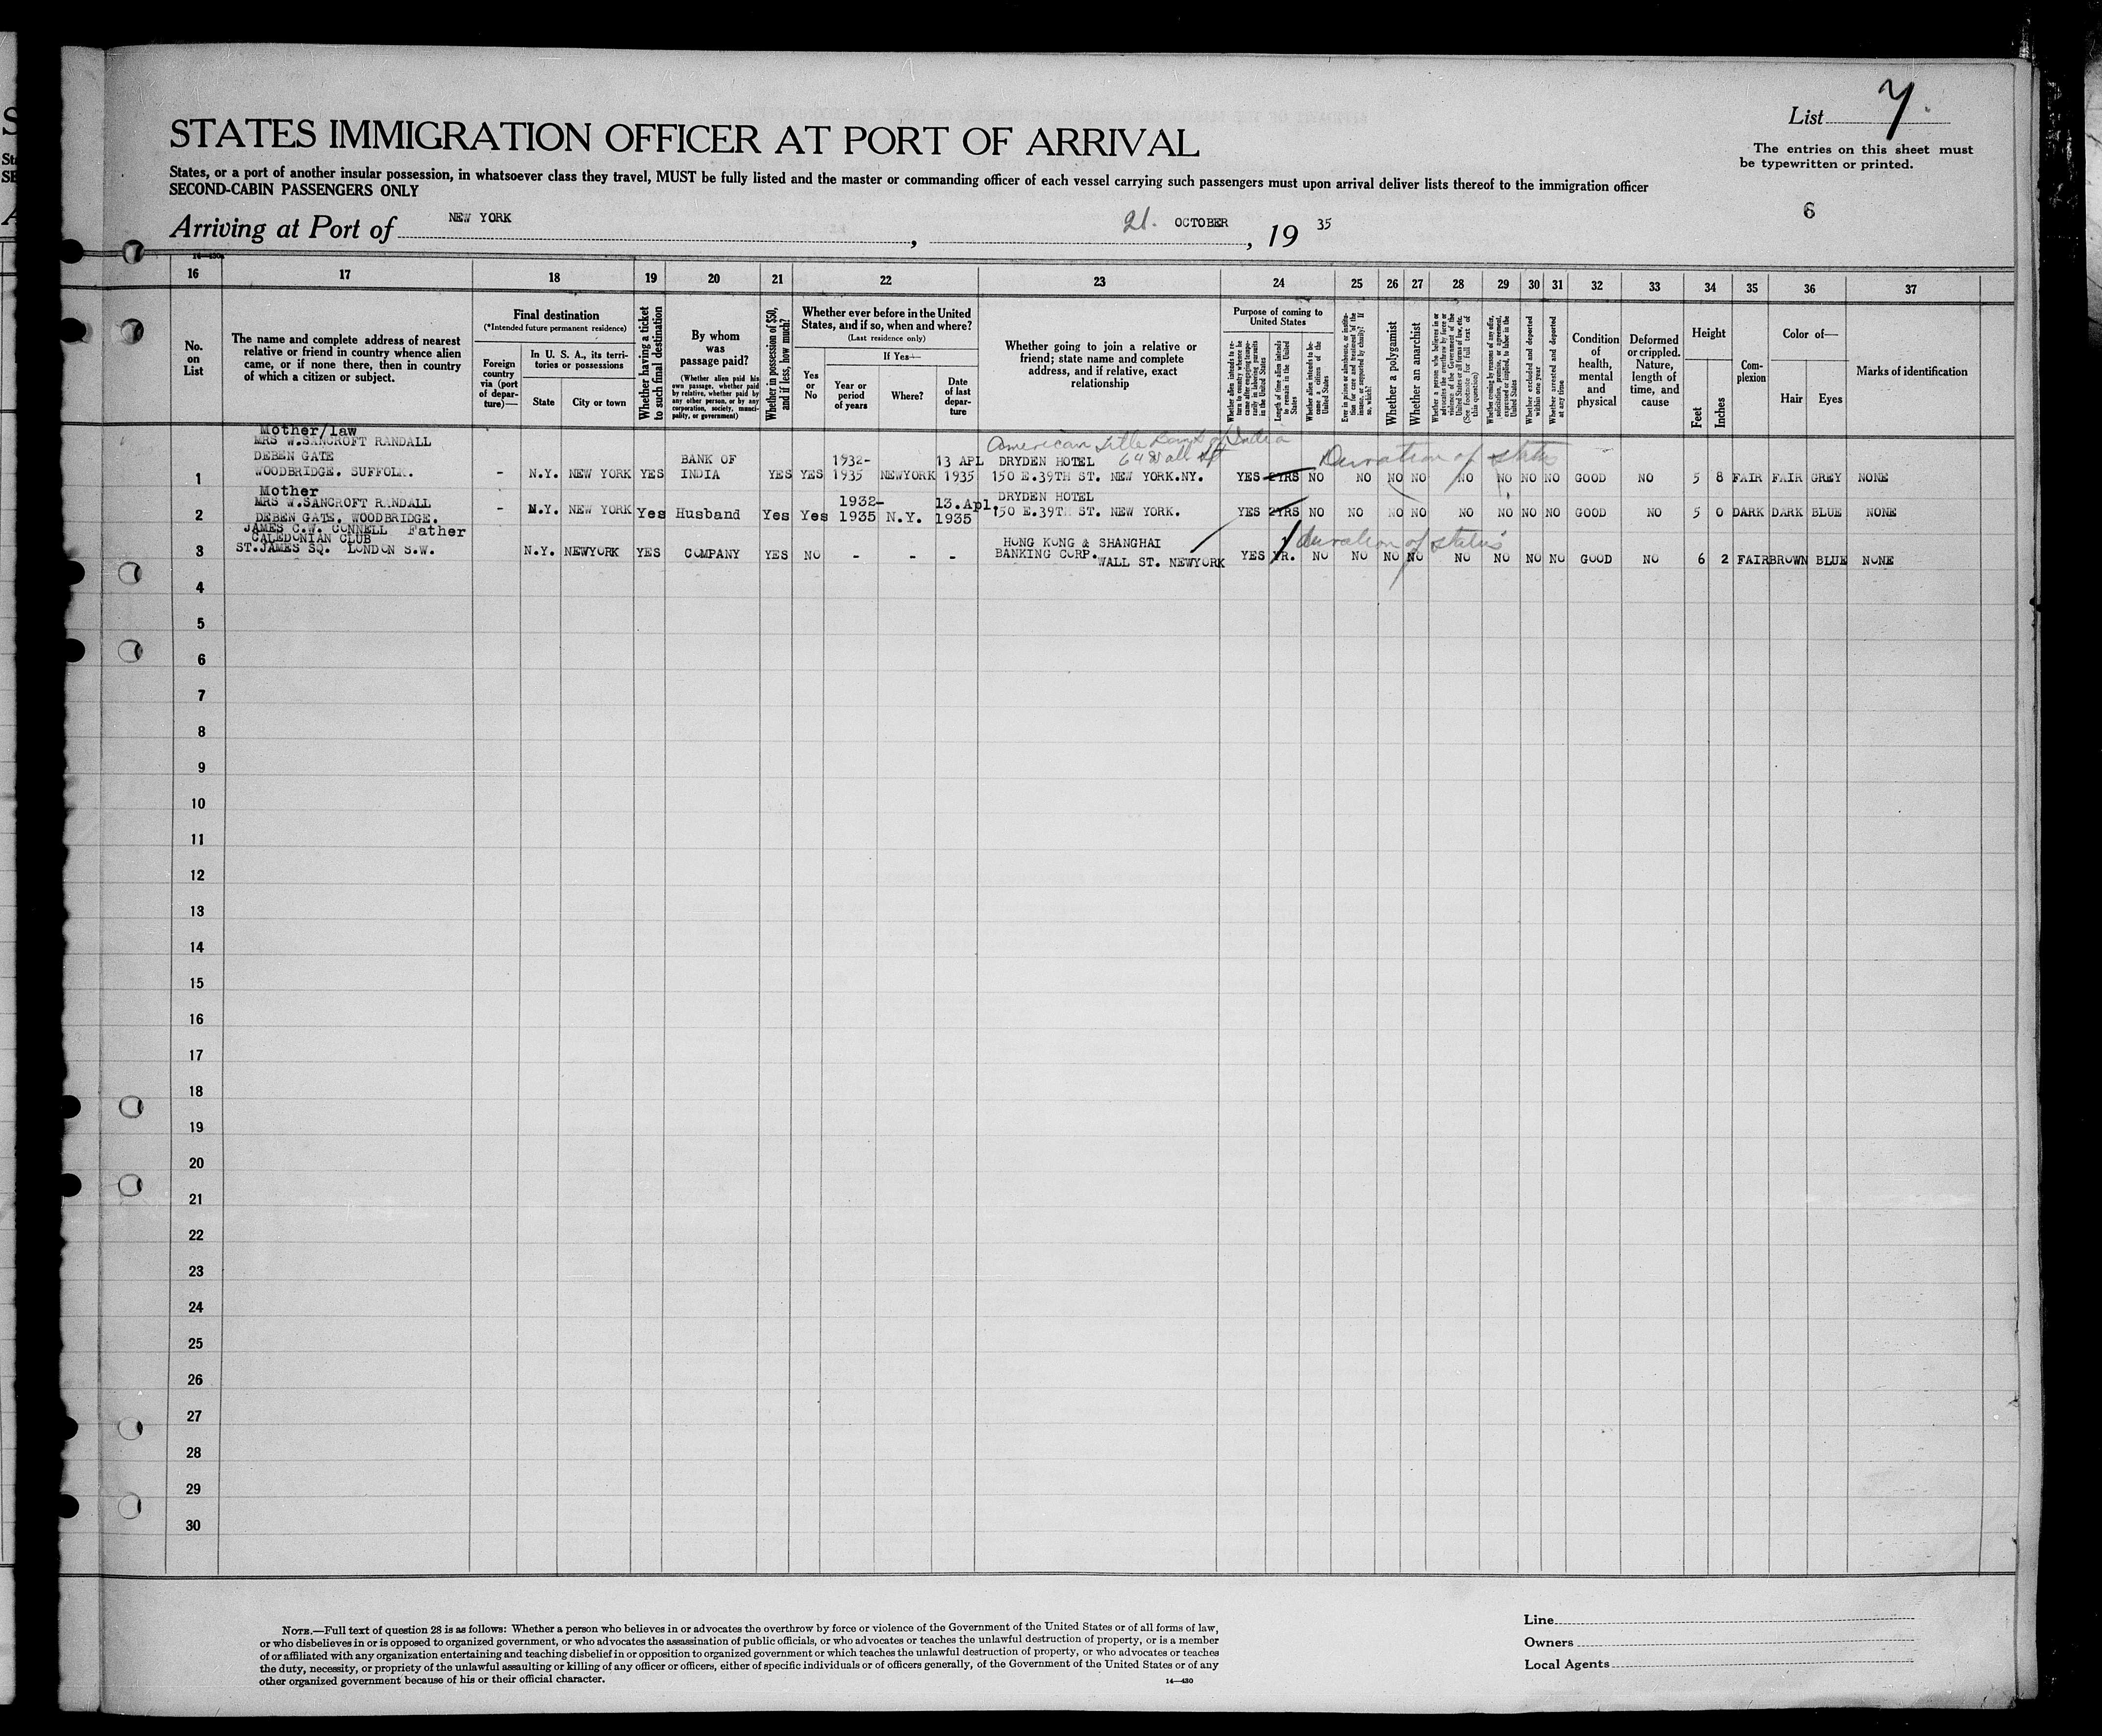 List 7.
STATES IMMIGRATION OFFICER AT PORT OF ARRIVAL
The entries on this sheet must
be typewritten or printed.
States, or a port of another insular possession, in whatsoever class they travel, MUST be fully listed and the master or commanding officer of each vessel carrying such passengers must upon arrival deliver lists thereof to the immigration officer
SECOND-CABIN PASSENGERS ONLY
6
Arriving at Port of NEW YORK, 21. OCTOBER, 19 35
16 17 18 19 20 21 22 23 24 25 26 27 28 29 30 31 32 33 34 35 36 37
No.
on
List
The name and complete address of nearest
relative or friend in country whence alien
came, or if none there, then in country
of which a citizen or subject.
Final destination
(*Intended future permanent residence)
Foreign
country
via (port
of depar-
ture)—
In U. S. A., its terri-
tories or possessions
State City or town
Whether having a ticket
to such final destination
By whom
was
passage paid?
(Whether alien paid his
own passage, whether paid
by relative, whether paid by
any other person, or by any
corporation, society, munici-
pality, or government)
Whether in possession of $50,
and if less, how much?
Whether ever before in the United
States, and if so, when and where?
(Last residence only)
Yes
or
No
If Yes—
Year or
period
of years
Where?
Date
of last
depar-
ture
Whether going to join a relative or
friend; state name and complete
address, and if relative, exact
relationship
Purpose of coming to
United States
Length of time alien intends
to remain in the United
States
Whether alien intends to be-
come a citizen of the
United States
Whether a polygamist
Whether an anarchist
Whether excluded and deported
within one year
Whether arrested and deported
at any time
Condition
of
health,
mental
and
physical
Deformed
or crippled.
Nature,
length of
time, and
cause
Height
Feet Inches
Com-
plexion
Color of—
Hair Eyes
Marks of identification
Mother/law
MRS W.SANCROFT RANDALL
DEBEN GATE
WOODBRIDGE. SUFFOLK.
American
64 Wall St
Duration of status
1 - N.Y. NEW YORK YES BANK OF INDIA YES YES 1932-1935 NEWYORK 13 APL 1935 DRYDEN HOTEL 150 E.39TH ST. NEW YORK.NY. YES 2YRS NO NO NO NO NO NO NO NO GOOD NO 5 8 FAIR FAIR GREY NONE
Mother
MRS W.SANCROFT RANDALL
DEBEN GATE. WOODBRIDGE.
2 - N.Y. NEW YORK Yes Husband Yes Yes 1932-1935 N.Y. 13.Apl. 1935 DRYDEN HOTEL 150 E.39TH ST. NEW YORK. YES 2YRS NO NO NO NO NO NO NO NO GOOD NO 5 0 DARK DARK BLUE NONE
JAMES C.W. CONNELL Father
CALEDONIAN CLUB
ST.JAMES SQ. LONDON S.W.
duration of status
3 N.Y. NEWYORK YES COMPANY YES NO - - - HONG KONG & SHANGHAI BANKING CORP. WALL ST. NEWYORK YES YR. NO NO NO NO NO NO NO NO GOOD NO 6 2 FAIR BROWN BLUE NONE
4
5
6
7
8
9
10
11
12
13
14
15
16
17
18
19
20
21
22
23
24
25
26
27
28
29
30
NOTE.—Full text of question 28 is as follows: Whether a person who believes in or advocates the overthrow by force or violence of the Government of the United States or of all forms of law,
or who disbelieves in or is opposed to organized government, or who advocates the assassination of public officials, or who advocates or teaches the unlawful destruction of property, or is a member
of or affiliated with any organization entertaining and teaching disbelief in or opposition to organized government or which teaches the unlawful destruction of property, or who advocates or teaches
the duty, necessity, or propriety of the unlawful assaulting or killing of any officer or officers, either of specific individuals or of officers generally, of the Government of the United States or of any
other organized government because of his or their official character.
14—430
Line
Owners
Local Agents